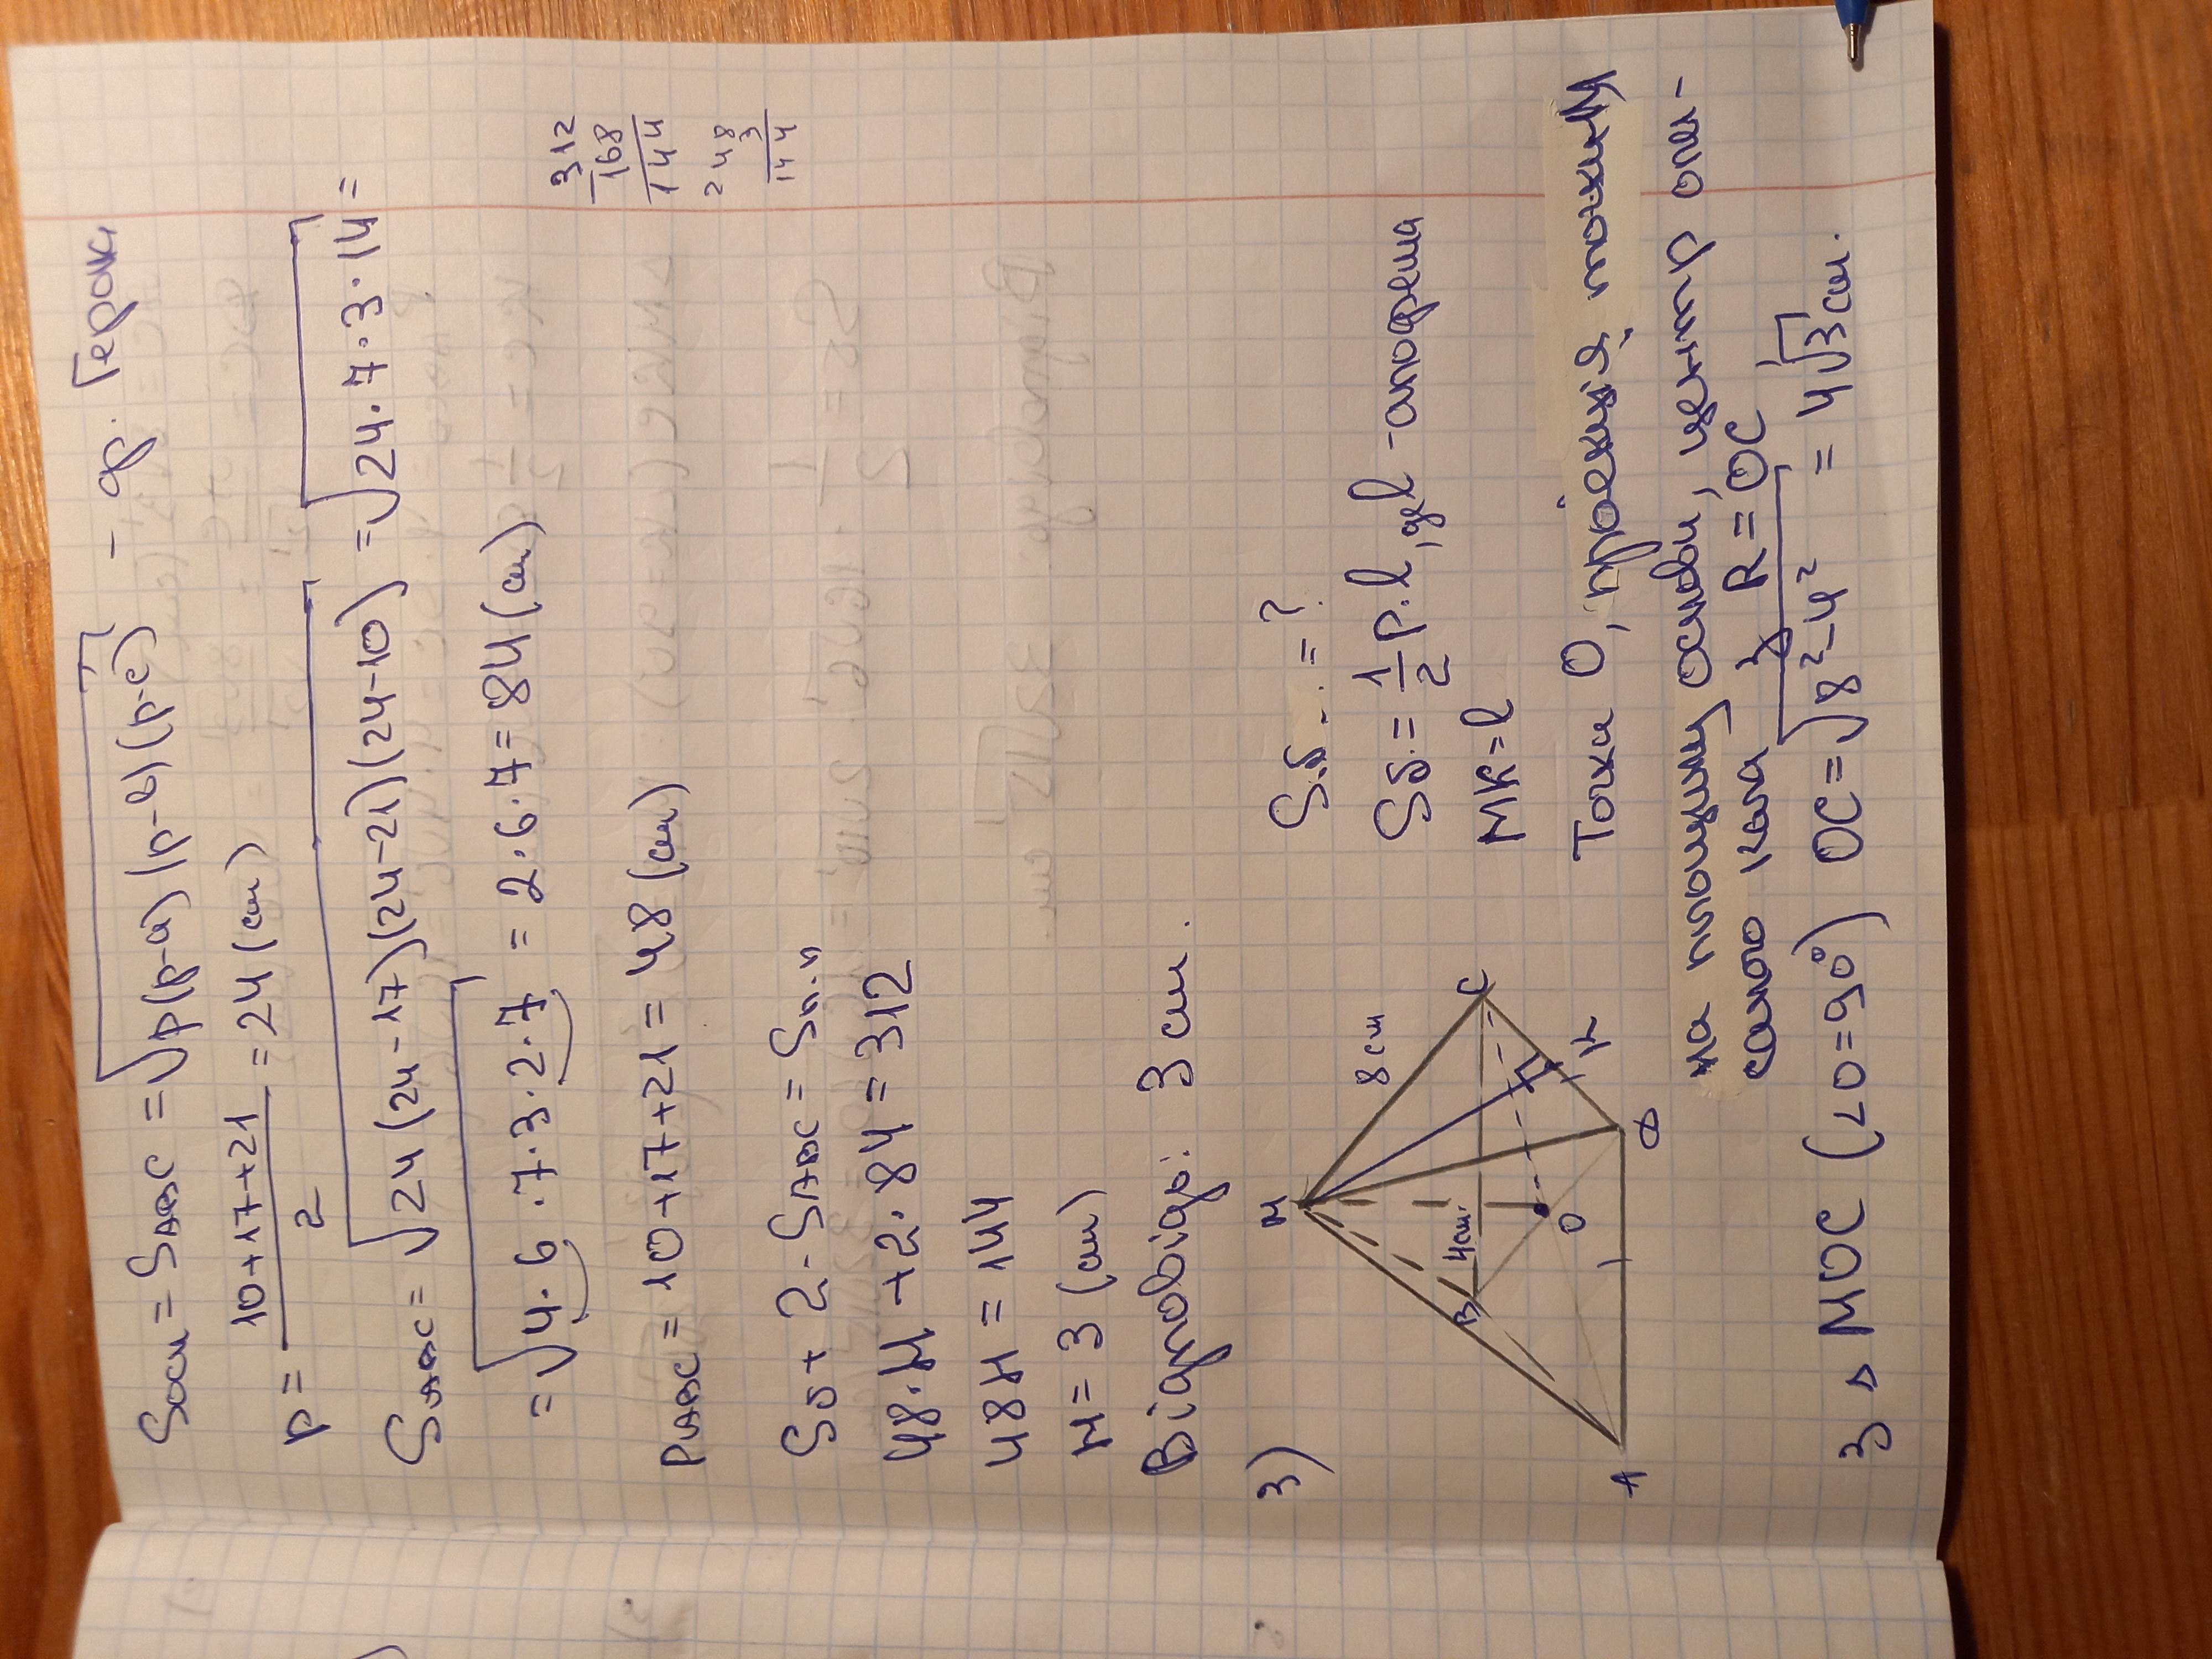 Sосн = S∆ABC = √p(p-a)(p-b)(p-c) - ф. Герона
p = 10+17+21 / 2 = 24 (см)
S∆ABC = √24(24-17)(24-21)(24-10) = √24·7·3·14 =
= √4·6·7·3·2·7 = 2·6·7 = 84 (см)
P∆ABC = 10+17+21 = 48 (см)
312
168
144
248
3
144
Sб + 2·S∆ABC = Sп.п
48·H + 2·84 = 312
48H = 144
H = 3 (см)
Відповідь: 3 см.
3)
M
8 см
C
B
4см.
O
K
D
A
Sб. = ?
Sб. = 1/2 p·l, де l - апофема
MK = l
Точка O, проекція точки M
на площину основи, центр опи-
саного кола
R = OC
З ∆ MOC (∠O=90°) OC = √8²-4² = 4√3 см.